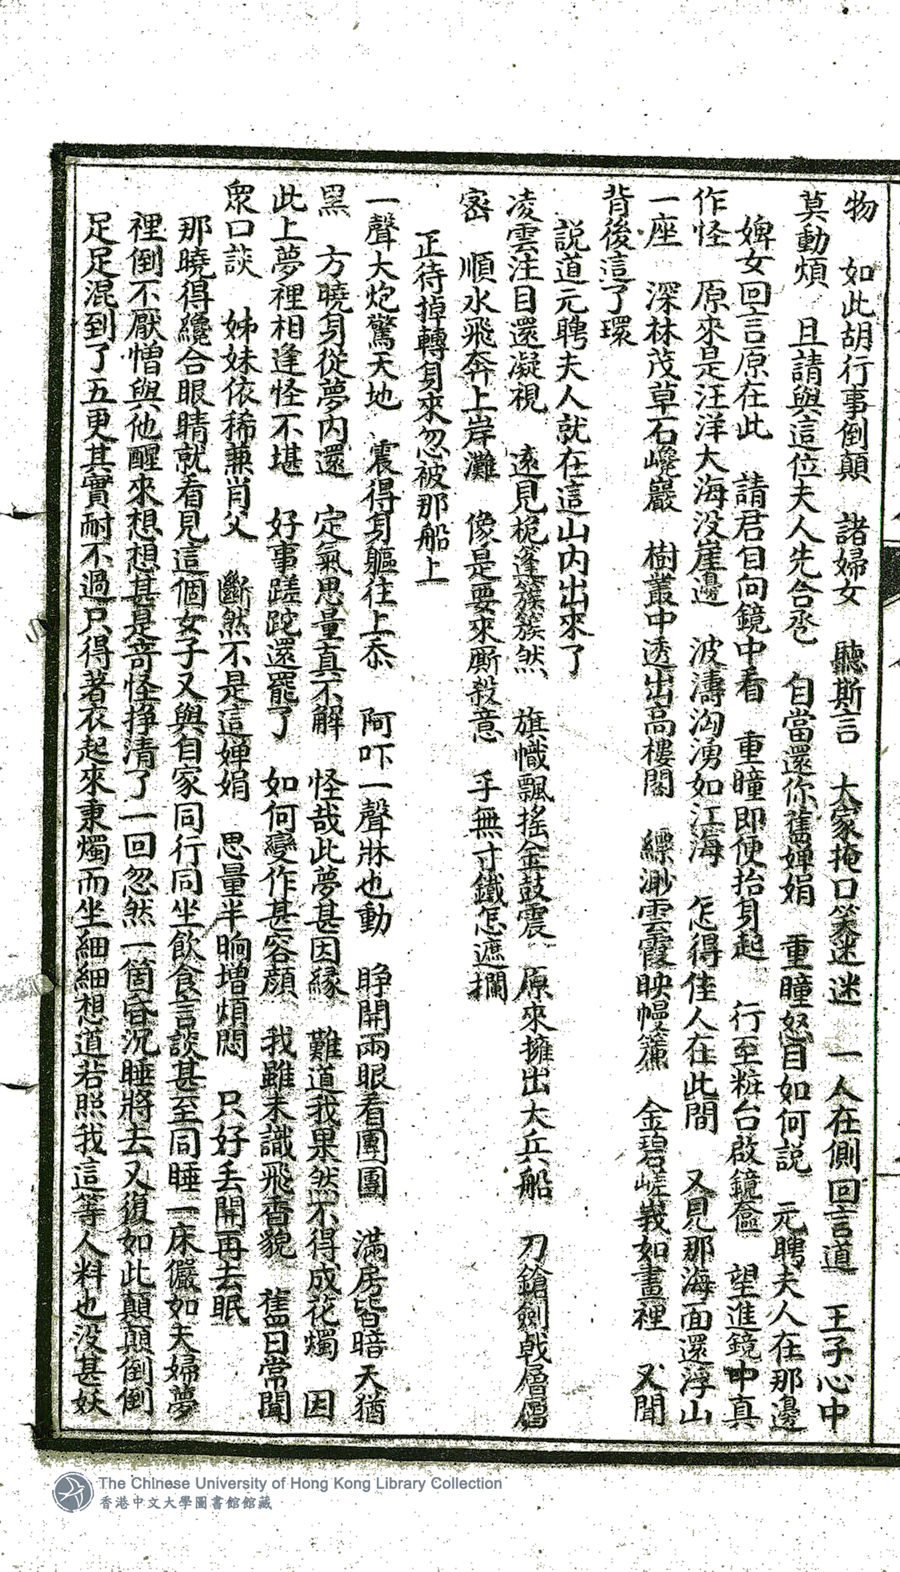 物　如此胡行事倒顛　諸婦女　聽斯言　大家掩口笑迷迷　一人在側回言道　王子心中
莫動煩　且請與這位夫人先合卺　自當還你舊嬋娟　重瞳怒目如何說　元聘夫人在那邊
婢女回言原在此　請君目向鏡中看　重瞳即便抬身起　行至粧台啟鏡奩　望進鏡中真
作怪　原來是汪洋大海没崖邊　波濤洶湧如江海　怎得佳人在此間　又見那海面還浮山
一座　深林茂草石巉巖　樹叢中透出高樓閣　縹渺雲霞映幍簾　金碧嵯峩如畫裡　又聞
背後這了環
說道元聘夫人就在這山内出來了
凌雲注目還凝視　遠見桅篷簇簇然　旗幟飄搖金鼓震　原來擁出大兵船　刀鎗劍戟層層
密　順水飛奔上岸灘　像是要來厮殺意　手無寸鐵怎遮攔
正待掉轉身來忽被那船上
一聲大炮驚天地　震得身軀往上忝　阿吓一聲牀也動　睜開兩眼看團團　滿房皆暗天猶
黑　方曉身從夢内還　定氣思量真不解　怪哉此夢甚因縁　難道我果然不得成花燭　因
此上夢裡相逢怪不堪　好事蹉跎還罷了　如何變作甚容顔　我雖未識飛香貌　舊日常聞
衆口談　姊妹依稀兼肖父　斷然不是這嬋娟　思量半晌增煩悶　只好丢開再去眠
那曉得纔合眼睛就看見這個女子又與自家同行同坐飲食言談甚至同睡一床儼如夫婦夢
裡倒不厭憎與他醒來想想甚是奇怪掙清了一回忽然一箇昏沉睡將去又復如此顛顛倒倒
足足混到了五更其實耐不過只得著衣起來秉燭而坐細細想道若照我這等人料也没甚妖
The Chinese University of Hong Kong Library Collection
香港中文大學圖書館館藏